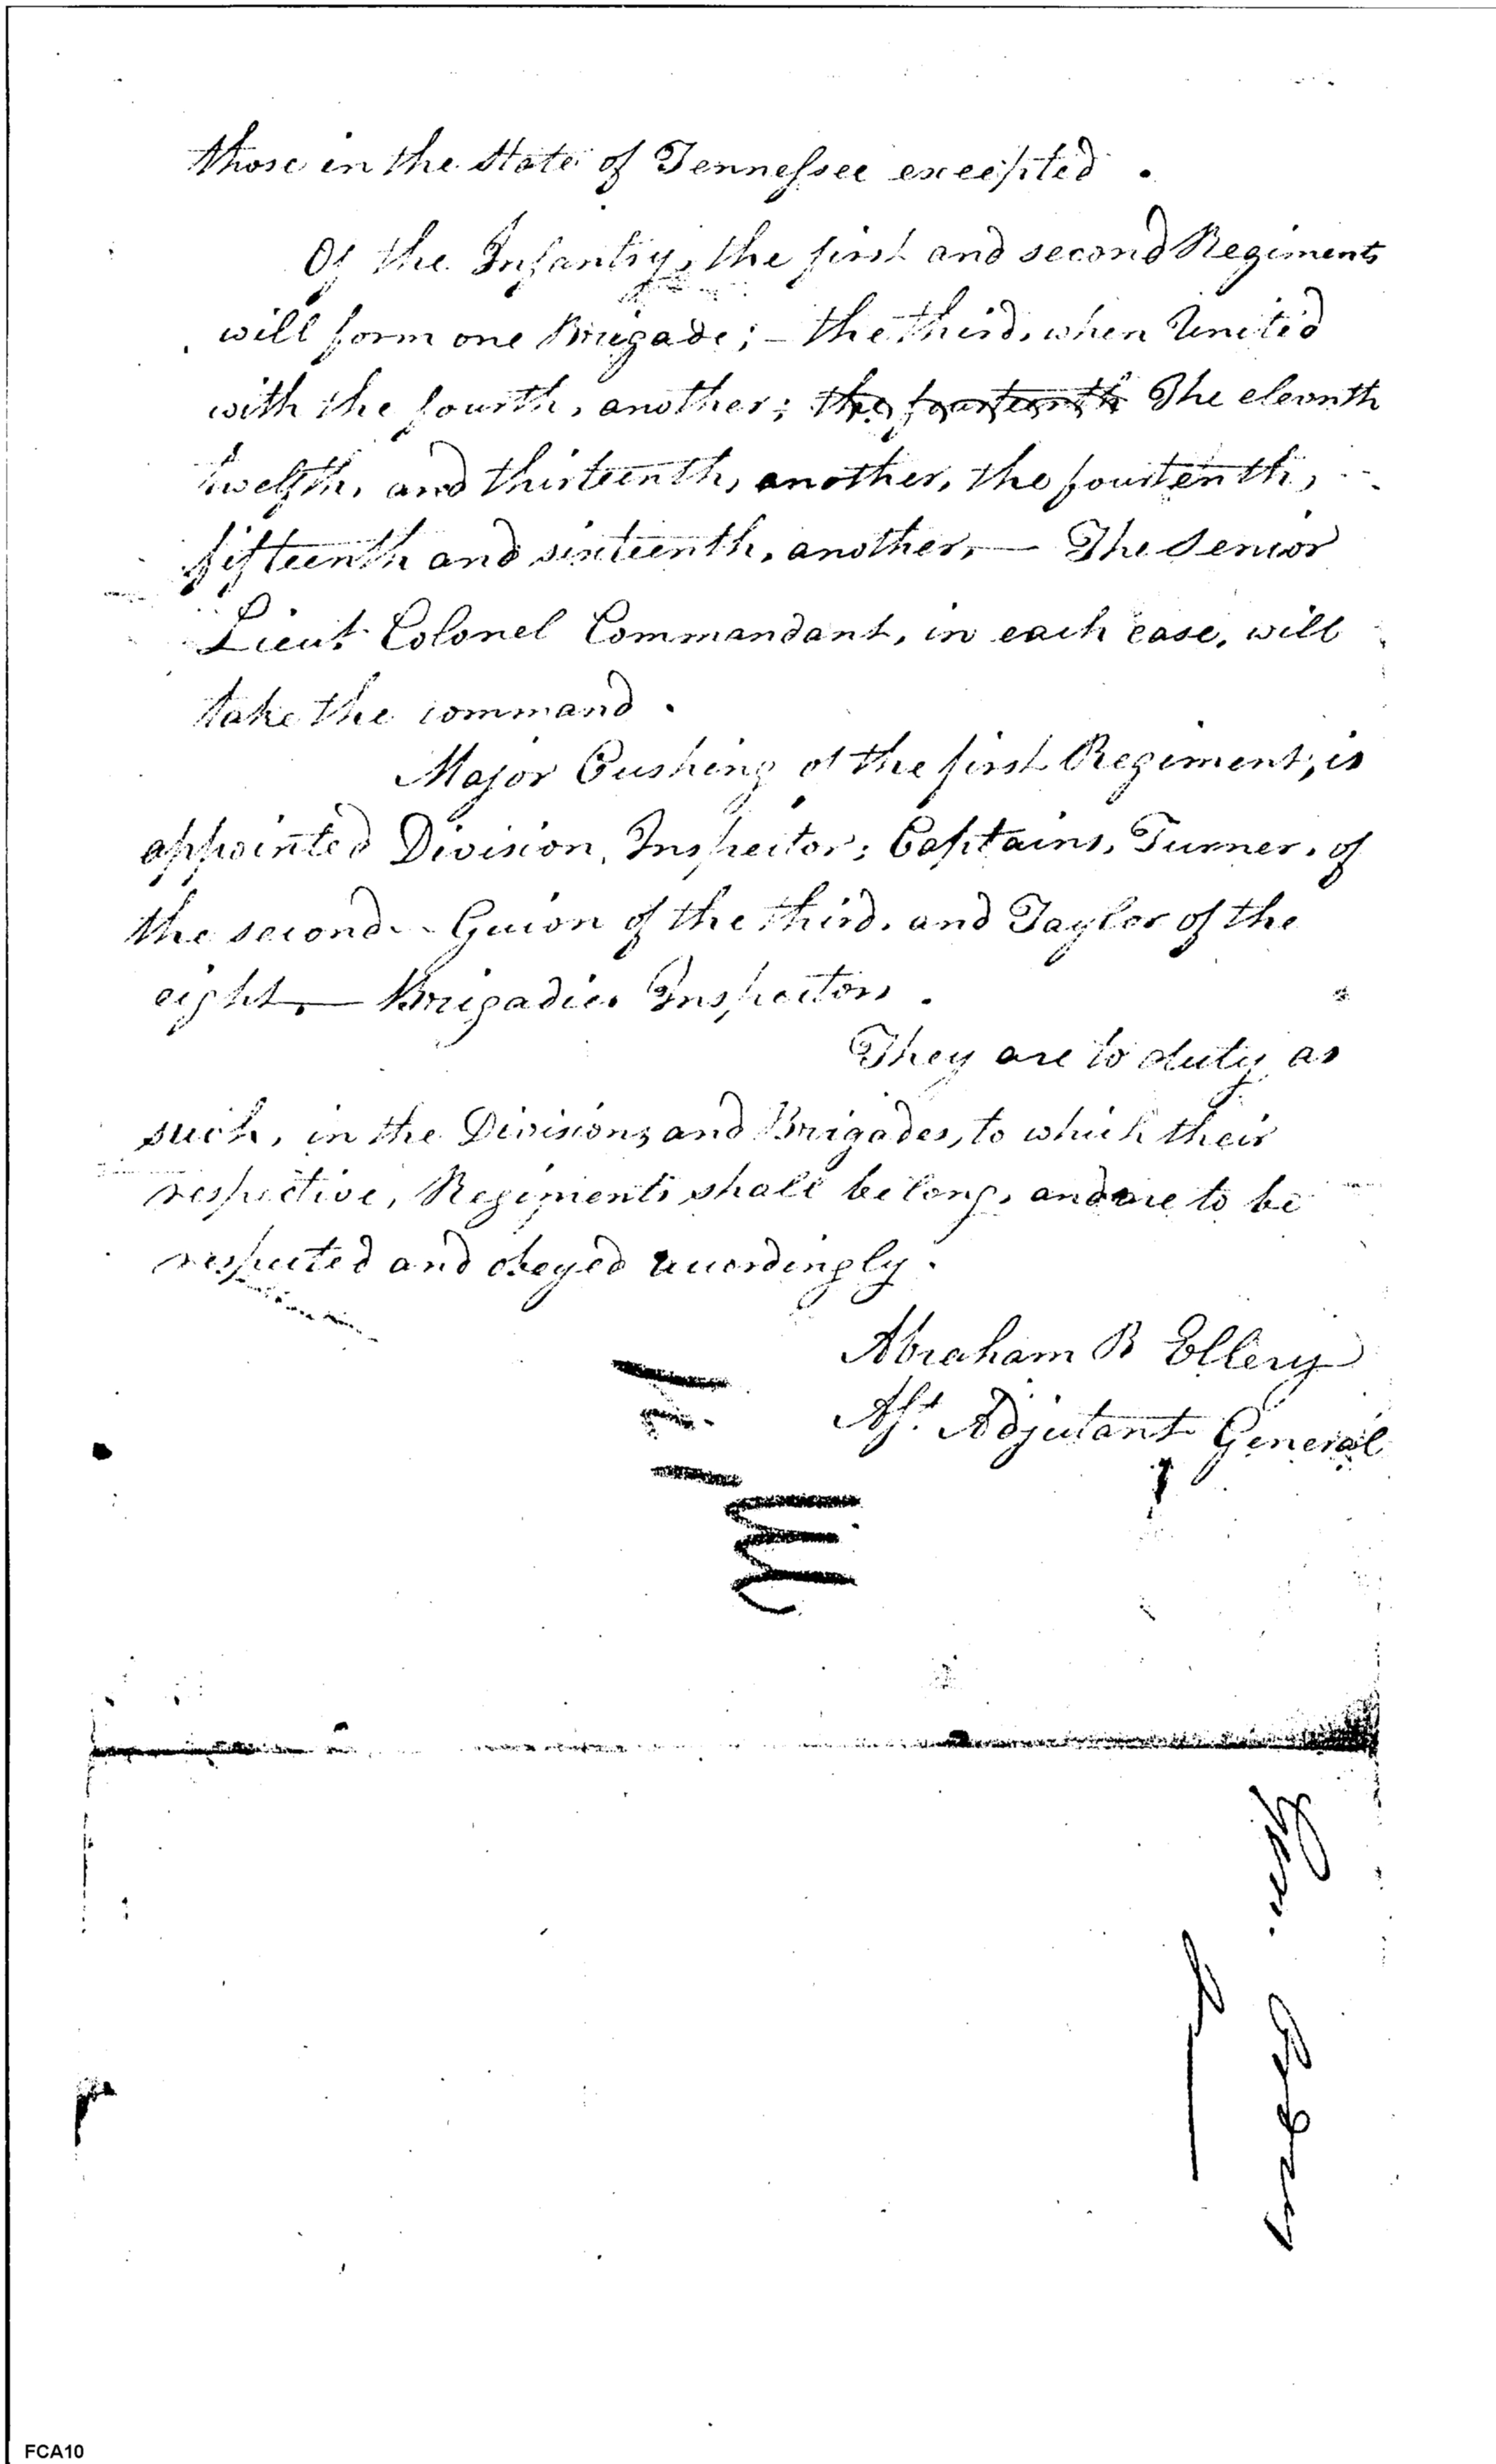 those in the State of Tennessee excepted.
Of the Infantry, the first and second Regiments
will form one Brigade; – the third, when United
with the fourth, another; the fourteenth The eleventh
twelfth, and thirteenth, another, the fourtenth,
fifteenth and sixteenth, another, — The senior
Lieut. Colonel Commandant, in each case, will
take the command.
Major Cushing of the first Regiment, is
appointed Division, Inspector; Captains, Turner, of
the second – Guion of the third, and Taylor of the
eight, — Brigadier Inspectors.
They are to duty as
such, in the Divisions and Brigades, to which their
respective, Regiments shall belong, and are to be
respected and obeyed accordingly.
Abraham R Ellery
Asst. Adjutant General
FCA10